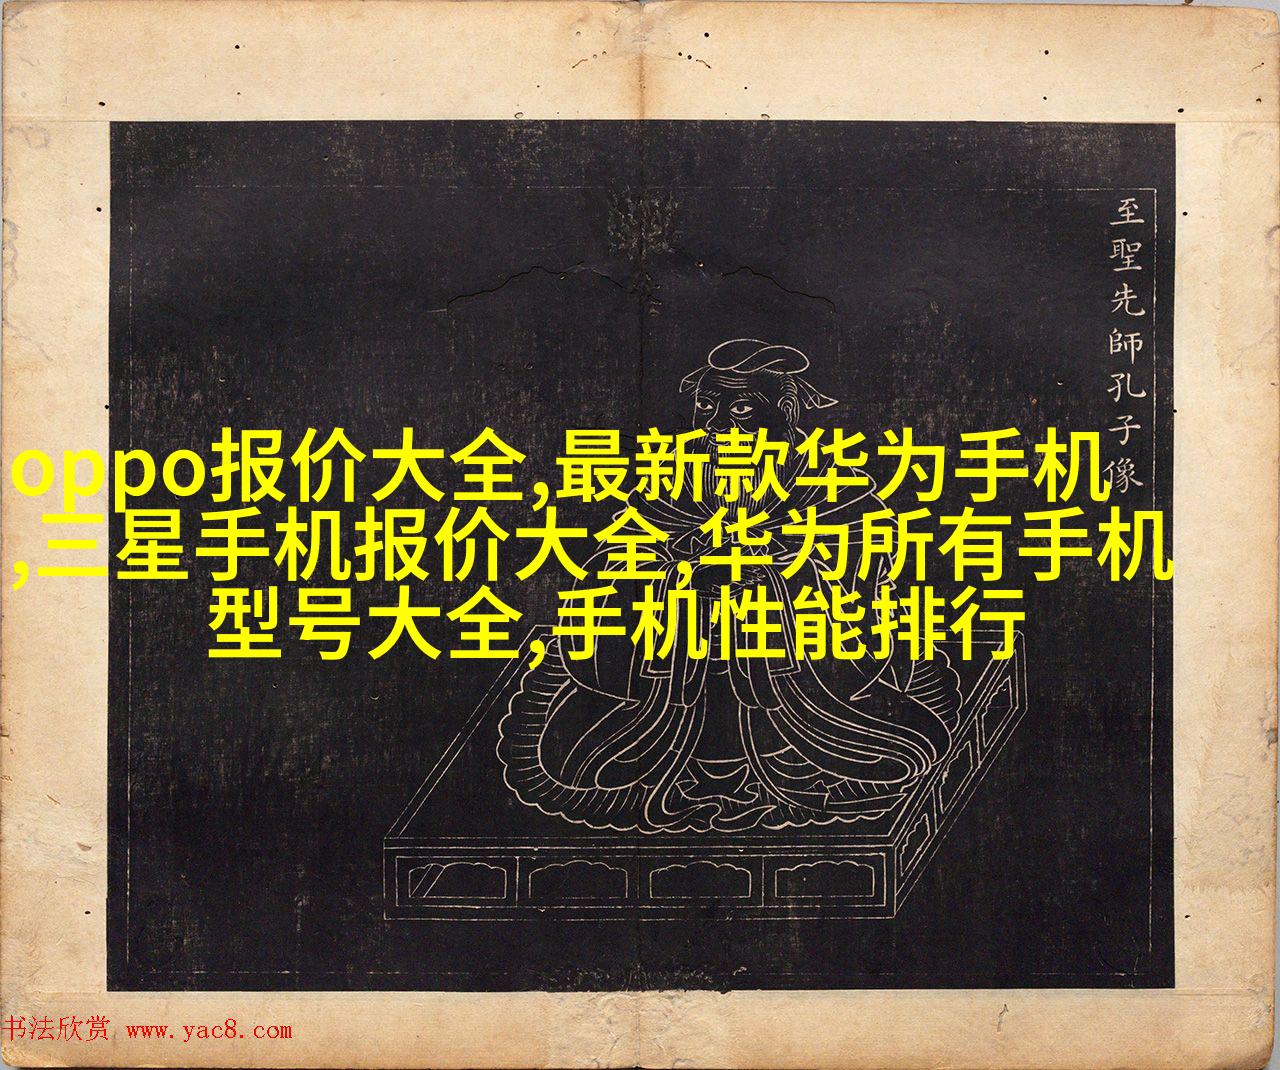 至聖先師孔子像
oppo报价大全,最新款华为手机
,三星手机报价大全,华为所有手机
型号大全,手机性能排行
书法欣赏 www.yac8.com